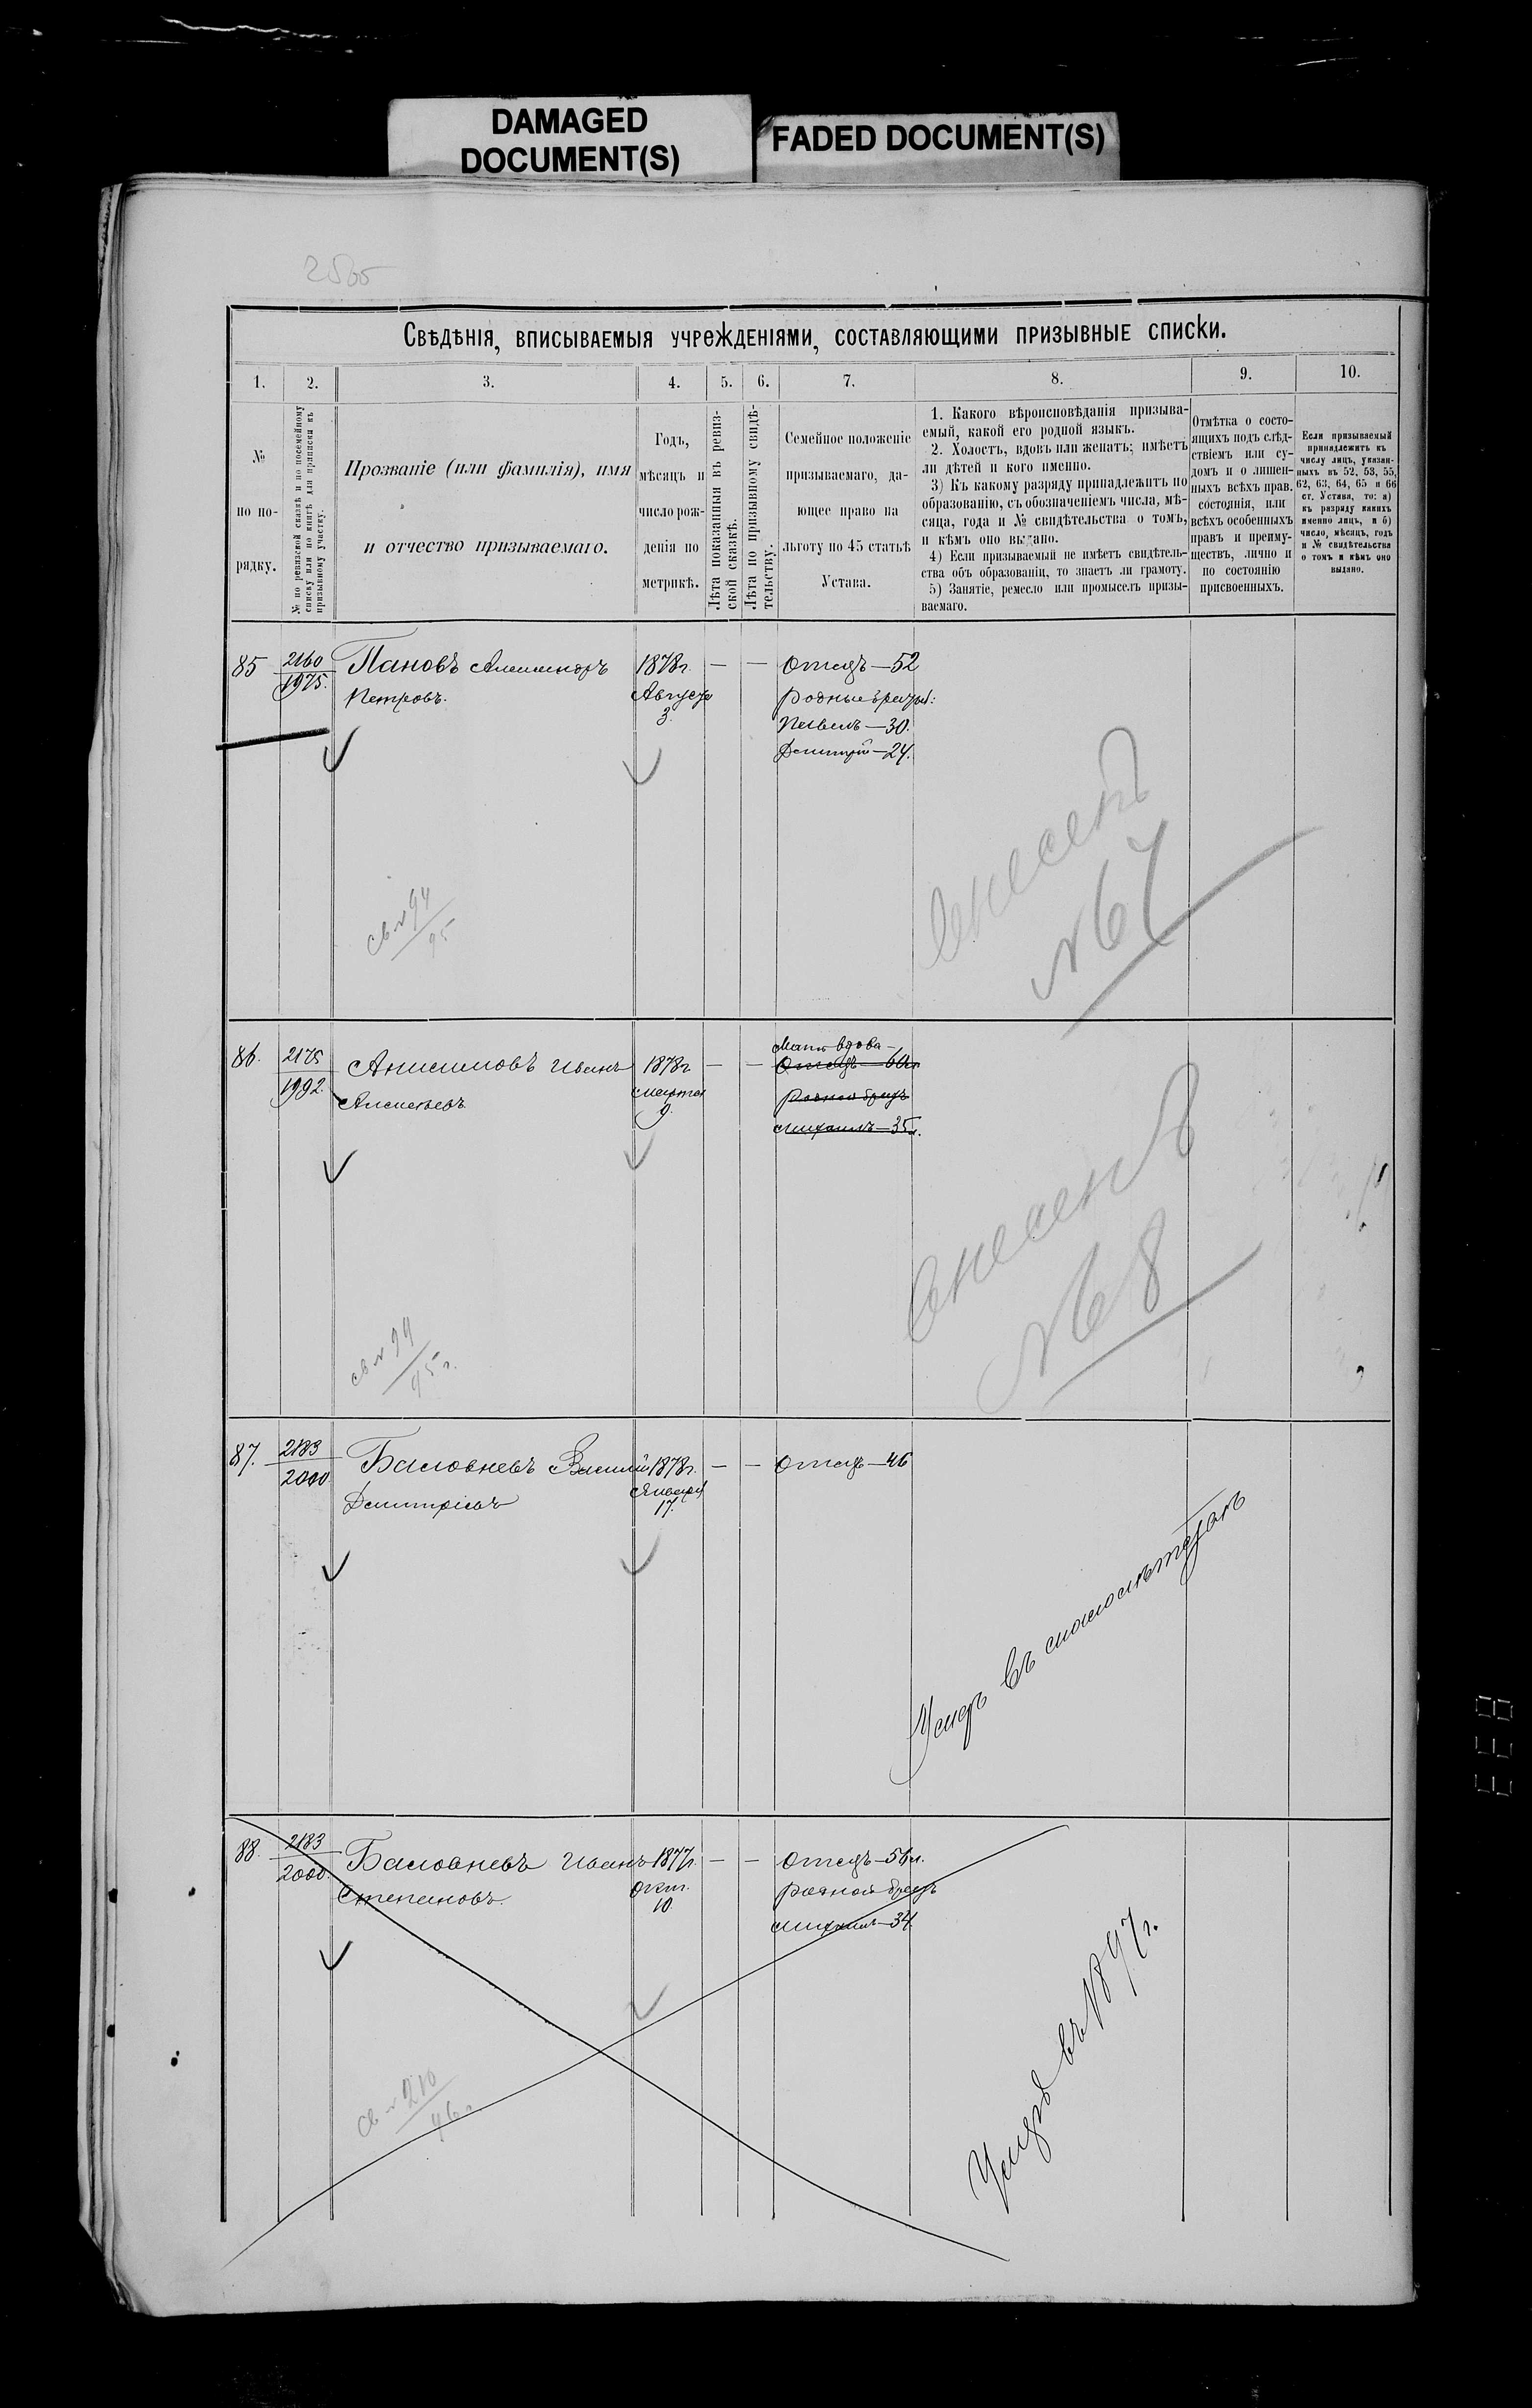 DAMAGED
DOCUMENT(S)
FADED DOCUMENT(S)
Свѣдѣнія, вписываемыя учрежденіями, составляющими призывные списки.
1. 2. 3. 4. 5. 6. 7. 8. 9. 10.
№
по по-
рядку.
№ по ревизской сказкѣ и по посемейному
списку или по книгѣ для приписки къ
призывному участку.
Прозваніе (или фамилія), имя
и отчество призываемаго.
Годъ,
мѣсяцъ и
число рож-
денія по
метрикѣ.
Лѣта показанныя въ ревиз-
ской сказкѣ.
Лѣта по призывному свидѣ-
тельству.
Семейное положеніе
призываемаго, да-
ющее право на
льготу по 45 статьѣ
Устава.
1. Какого вѣроисповѣданія призыва-
емый, какой его родной языкъ.
2. Холостъ, вдовъ или женатъ; имѣетъ
ли дѣтей и кого именно.
3) Къ какому разряду принадлежитъ по
образованію, съ обозначеніемъ числа, мѣ-
сяца, года и № свидѣтельства о томъ,
и кѣмъ оно выдано.
4) Если призываемый не имѣетъ свидѣтель-
ства объ образованіи, то знаетъ ли грамоту.
5) Занятіе, ремесло или промыселъ призы-
ваемаго.
Отмѣтка о состо-
ящихъ подъ слѣд-
ствіемъ или су-
домъ и о лишен-
ныхъ всѣхъ прав.
состоянія, или
всѣхъ особенныхъ
правъ и преиму-
ществъ, лично и
по состоянію
присвоенныхъ.
Если призываемый
принадлежитъ къ
числу лицъ, указан-
ныхъ въ 52, 53, 55,
62, 63, 64, 65 и 66
ст. Устава, то: а)
къ разряду какихъ
именно лицъ, и б)
число, мѣсяцъ, годъ
и № свидѣтельства
о томъ и кѣмъ оно
выдано.
85 2160 Пановъ Александръ 1878г. — — Отецъ—52
1975. Петровъ. Августа Родные братья:
3. Павелъ—30.
Дмитрій—24.
внесенъ
№67
св №94
95
86. 2175 Анисимовъ Иванъ 1878г — — Мать вдова—
1992. Алексѣевъ Марта Отецъ—60л.
9. Родной братъ
Михаилъ—35л.
внесенъ
№68
св №94
95г.
87. 2183 Баловневъ Василій 1878г. — — Отецъ—46
2000 Дмитріевъ Января
17.
Умеръ въ малолѣтствѣ
88. 2183 Баловневъ Иванъ 1877г. — — Отецъ—56л.
2000. Степановъ. Окт. Родной братъ
10. Михаилъ—34.
Умеръ въ 1897г.
св №210
96г.